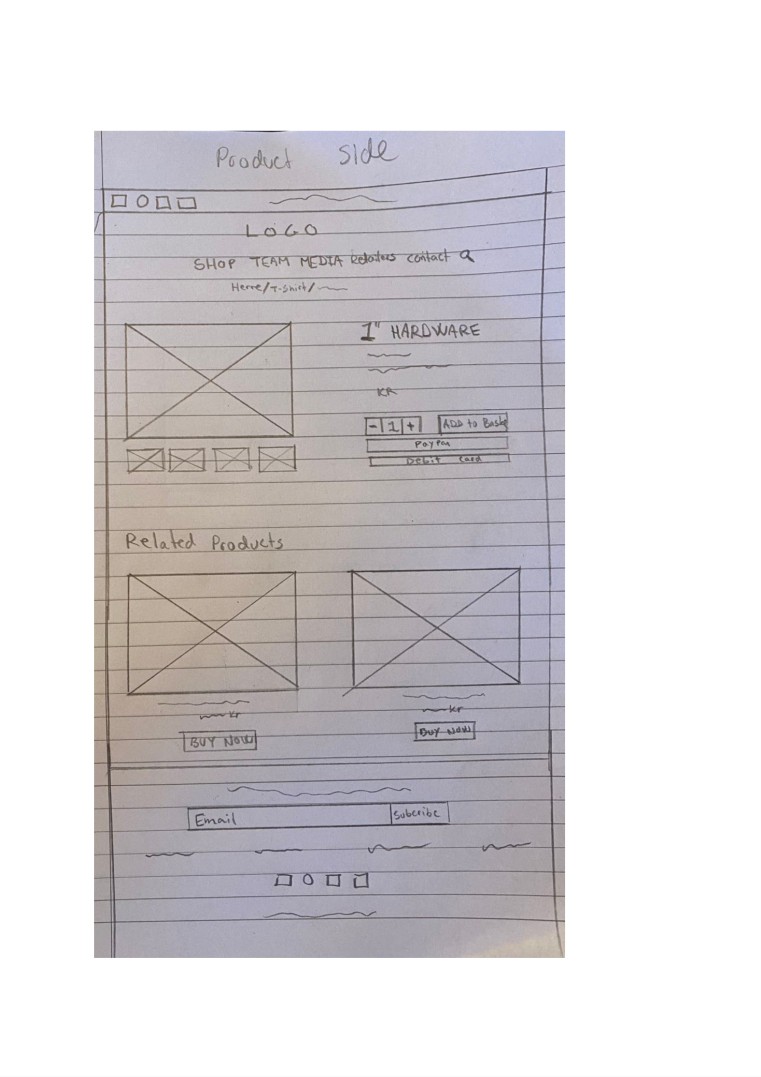 Product side
LOGO
SHOP TEAM MEDIA contact
/T-shirt/
1" HARDWARE
KR
- 1 +
ADD to Bask
Debit Card
Related Products
kr
kr
BUY NOW
BUY NOW
Email
Subcribe